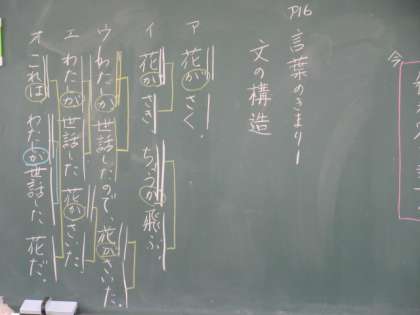 P16
言葉のきまり1
文の構造
ア 花がさく。
イ 花がさき、ちょうが飛ぶ。
ウ わたしが世話したので、花がさいた。
エ わたしが世話した花がさいた。
オ これは、わたしが世話した花だ。
今